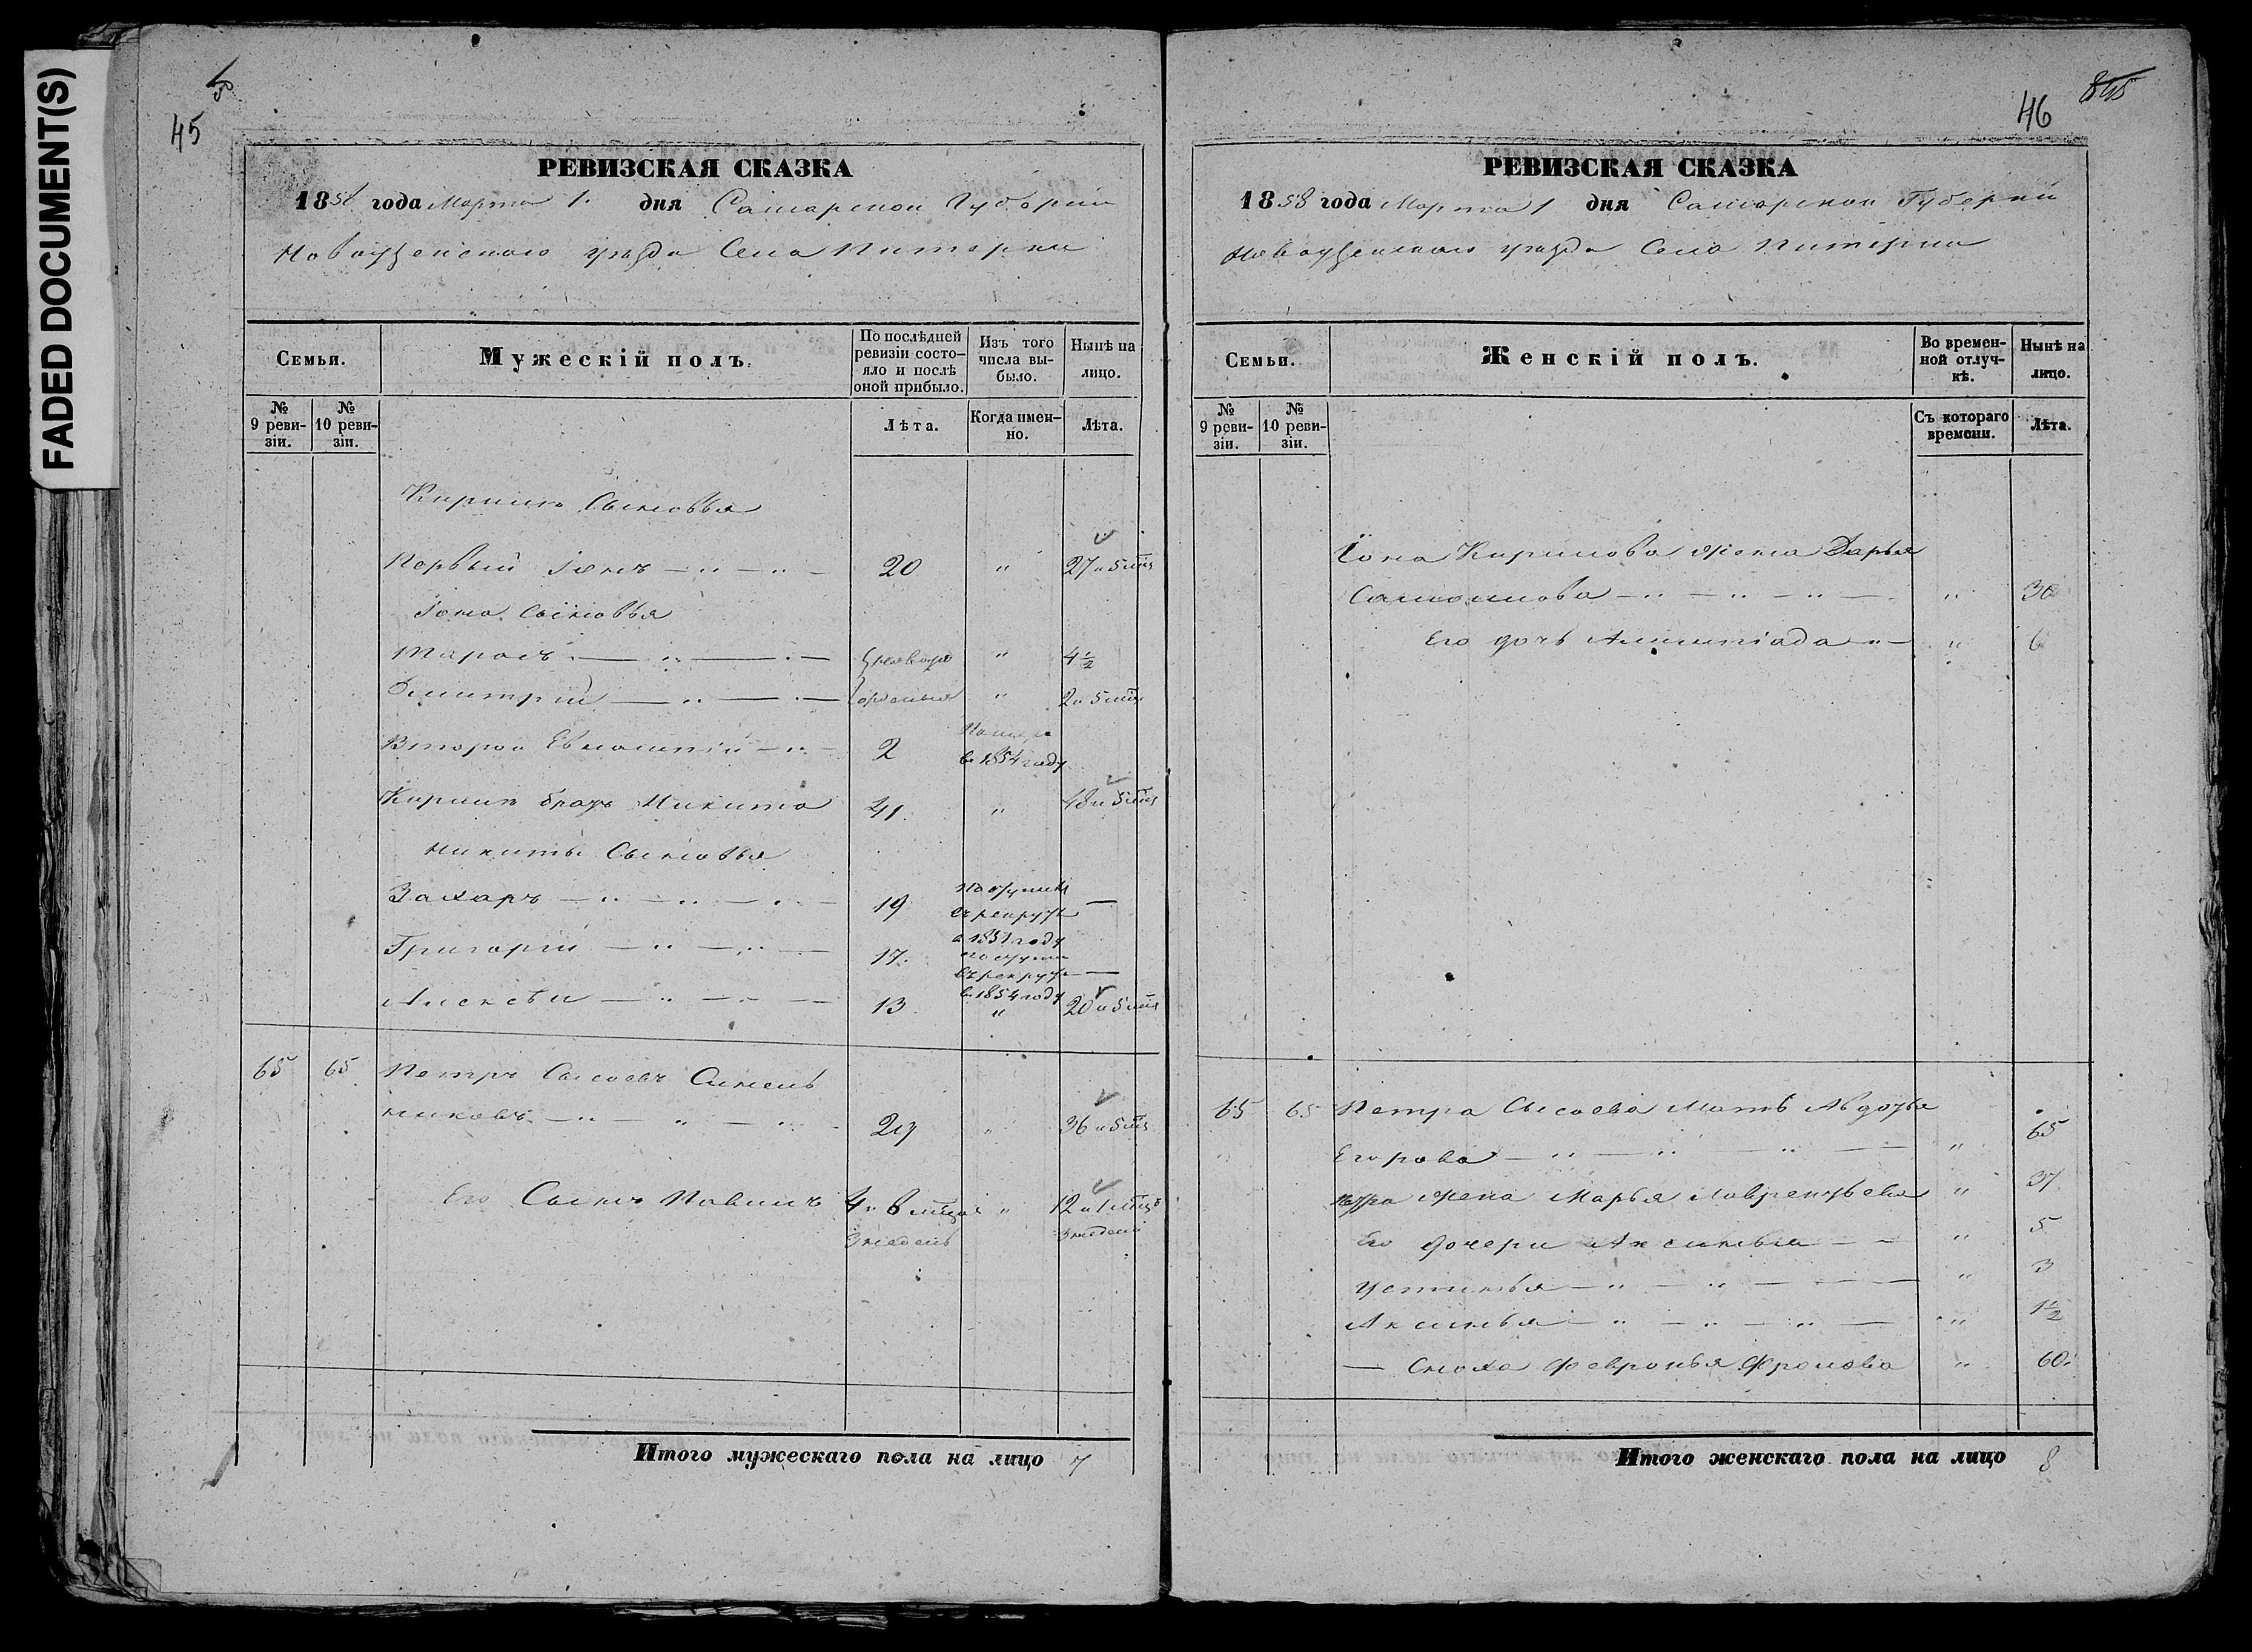 FADED DOCUMENT(S)
45
РЕВИЗСКАЯ СКАЗКА
1858 года Марта 1. дня Самарской Губернии
Новоузенскаго уезда Села Питерки
Семьи.
Мужескій полъ.
По послѣдней ревизіи состо-
яло и послѣ
оной прибыло.
Изъ того
числа вы-
было.
Нынѣ на
лицо.
№
9 реви-
зіи.
№
10 реви-
зіи.
Лѣта.
Когда имен-
но.
Лѣта.
Кирила Сыновья
Первый Іона 20 " 27 и 5 мѣс
Іона Сыновья
Тарасъ " 4 1/2
Дмитрій " 2 и 5 мѣс
Второй 2 Помере
въ 1854 году
Кирила братъ Никита 41. " 48 и 5 мѣс
Никиты Сыновья
Захаръ 19 
въ рекруты
в 1851 году
Григорій 17.
въ рекруты
в 1854 году
Алексѣй 13 " 20 и 5 мѣс
65 65 Петръ Сысоевъ Синель
никовъ 29 " 36 и 5 мѣс
Его Сынъ Павилъ 4 и " 12 и
3 недель 3 недели
Итого мужескаго пола на лицо 7
46
845
РЕВИЗСКАЯ СКАЗКА
1858 года Марта 1 дня Самарской Губернии
Новоузенскаго уезда Села Питерки
Семьи.
Женскій полъ.
Во времен-
ной отлуч-
кѣ.
Нынѣ на
лицо.
№
9 реви-
зіи.
№
10 реви-
зіи.
Съ котораго
времени.
Лѣта.
Іона Кирилова жена Дарья
Самоилова " 30
Его дочь " 6
65 65 Петра Сысоева Мать Авдотья
Егорова " 65
Петра жена Марья Лаврентьева " 37
Его дочери Аксинья " 5
Устинья " 3
Аксинья " 1 1/2
Сноха Февронья Фролова " 60.
Итого женскаго пола на лицо 8